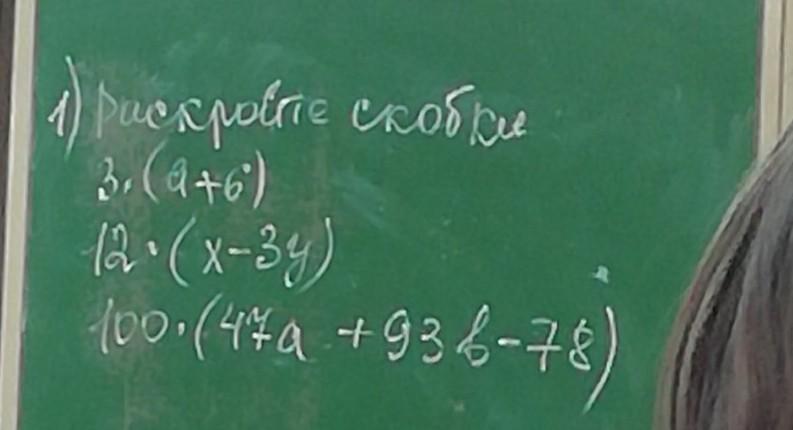 1) Раскройте скобки
3·(a+6)
12·(x-3y)
100·(47a+93b-78)